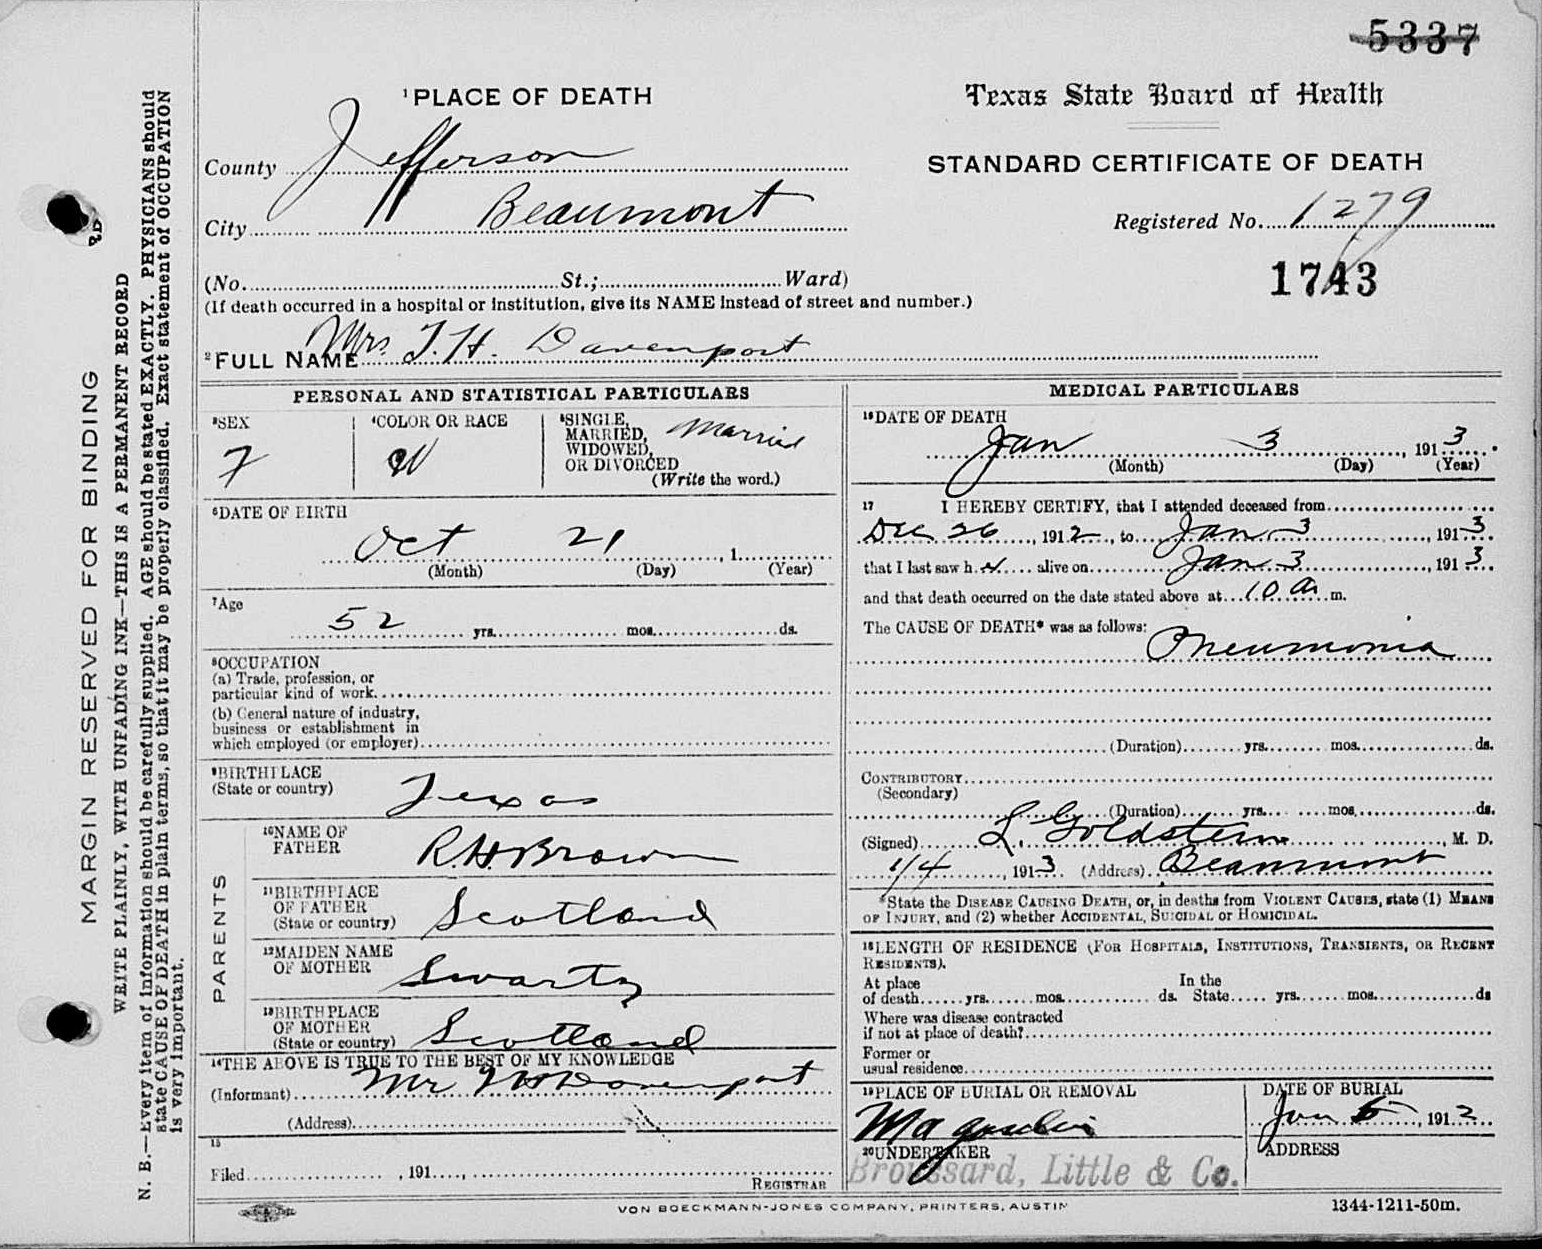 5337
1 PLACE OF DEATH
Texas State Board of Health
County Jefferson
STANDARD CERTIFICATE OF DEATH
City Beaumont
Registered No. 1279
(No. St.; Ward)
1743
(If death occurred in a hospital or institution, give its NAME instead of street and number.)
2 FULL NAME Mrs. T. H. Davenport
PERSONAL AND STATISTICAL PARTICULARS
3 SEX
F
4 COLOR OR RACE
W
5 SINGLE,
MARRIED,
WIDOWED,
OR DIVORCED
(Write the word.)
Married
6 DATE OF BIRTH
Oct 21, 1
(Month) (Day) (Year)
7 Age
52 yrs. mos. ds.
8 OCCUPATION
(a) Trade, profession, or
particular kind of work.
(b) General nature of industry,
business or establishment in
which employed (or employer)
9 BIRTHPLACE
(State or country)
Texas
PARENTS
10 NAME OF
FATHER
R H Brown
11 BIRTHPLACE
OF FATHER
(State or country)
Scotland
12 MAIDEN NAME
OF MOTHER
Swartz
13 BIRTHPLACE
OF MOTHER
(State or country)
Scotland
14 THE ABOVE IS TRUE TO THE BEST OF MY KNOWLEDGE
(Informant) Mr Davenport
(Address)
15
Filed , 191 ,
REGISTRAR
MEDICAL PARTICULARS
16 DATE OF DEATH
Jan 3, 1913
(Month) (Day) (Year)
17 I HEREBY CERTIFY, that I attended deceased from
Dec 26, 1912, to Jan 3, 1913
that I last saw h er alive on Jan 3, 1913
and that death occurred on the date stated above at 10 a m.
The CAUSE OF DEATH* was as follows:
Pneumonia
(Duration) yrs. mos. ds.
CONTRIBUTORY
(Secondary)
(Duration) yrs. mos. ds.
(Signed) L. Goldstein, M. D.
1/4, 1913 (Address) Beaumont
*State the DISEASE CAUSING DEATH, or, in deaths from VIOLENT CAUSES, state (1) MEANS
OF INJURY, and (2) whether ACCIDENTAL, SUICIDAL or HOMICIDAL.
18 LENGTH OF RESIDENCE (FOR HOSPITALS, INSTITUTIONS, TRANSIENTS, OR RECENT
RESIDENTS).
At place In the
of death yrs. mos. ds. State yrs. mos. ds
Where was disease contracted
if not at place of death?
Former or
usual residence
19 PLACE OF BURIAL OR REMOVAL
Magnolia
DATE OF BURIAL
Jan 5, 1912
20 UNDERTAKER
Broussard, Little & Co.
ADDRESS
VON BOECKMANN-JONES COMPANY, PRINTERS, AUSTIN
1344-1211-50m.
MARGIN RESERVED FOR BINDING
WRITE PLAINLY, WITH UNFADING INK—THIS IS A PERMANENT RECORD
N. B.—Every item of information should be carefully supplied. AGE should be stated EXACTLY. PHYSICIANS should
state CAUSE OF DEATH in plain terms, so that it may be properly classified. Exact statement of OCCUPATION
is very important.